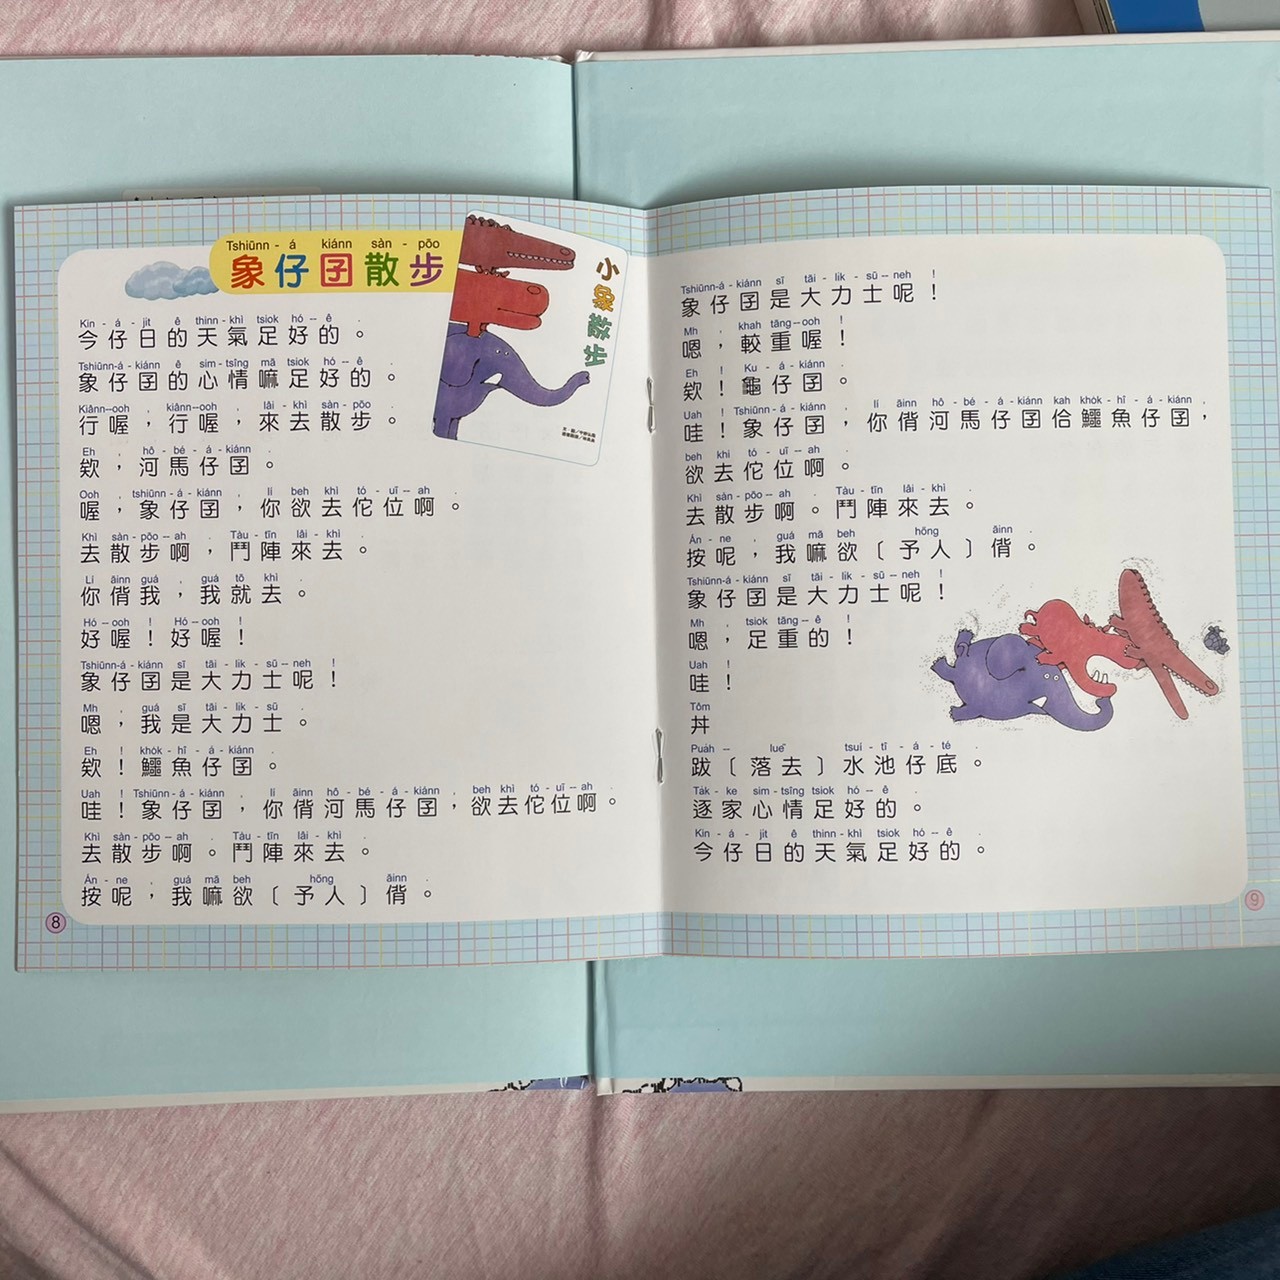 Tshiūnn - á kiánn sàn - pōo
象仔囝散步
小象散步
Kin - á - jit ê thinn - khì tsiok hó -- ê .
今仔日的天氣足好的。
Tshiūnn-á - kiánn ê sim - tsîng mā tsiok hó -- ê .
象仔囝的心情嘛足好的。
Kiânn--ooh , kiânn--ooh , lâi - khì sàn - pōo .
行喔，行喔，來去散步。
Eh , hô - bé - á - kiánn .
欸，河馬仔囝。
Ooh , tshiūnn - á - kiánn , lí beh khì tó - uī -- ah .
喔，象仔囝，你欲去佗位啊。
Khì sàn - pōo -- ah , Tàu - tīn lâi - khì .
去散步啊，鬥陣來去。
Lí āinn guá , guá tō khì .
你偝我，我就去。
Hó -- ooh ! Hó -- ooh !
好喔！好喔！
Tshiūnn-á - kiánn sī tāi - lik - sū -- neh !
象仔囝是大力士呢！
Mh , guá sī tāi - lik - sū .
嗯，我是大力士。
Eh ! khok - hî - á - kiánn .
欸！鱷魚仔囝。
Uah ! Tshiūnn - á - kiánn , lí āinn hô - bé - á - kiánn , beh khì tó - uī -- ah .
哇！象仔囝，你偝河馬仔囝，欲去佗位啊。
Khì sàn - pōo -- ah . Tàu - tīn lâi - khì .
去散步啊。鬥陣來去。
Án - ne , guá mā beh hōng āinn .
按呢，我嘛欲〔予人〕偝。
8
Tshiūnn-á - kiánn sī tāi - lik - sū -- neh !
象仔囝是大力士呢！
Mh , khah tāng--ooh !
嗯，較重喔！
Eh ! Ku - á - kiánn .
欸！龜仔囝。
Uah ! Tshiūnn - á - kiánn , lí āinn hô - bé - á - kiánn kah khok - hî - á - kiánn ,
哇！象仔囝，你偝河馬仔囝佮鱷魚仔囝，
beh khì tó - uī -- ah .
欲去佗位啊。
Khì sàn - pōo -- ah . Tàu - tīn lâi - khì .
去散步啊。鬥陣來去。
Án - ne , guá mā beh hōng āinn .
按呢，我嘛欲〔予人〕偝。
Tshiūnn-á - kiánn sī tāi - lik - sū -- neh !
象仔囝是大力士呢！
Mh , tsiok tāng -- ê !
嗯，足重的！
Uah !
哇！
Tôm
丼
Puah -- lueh tsuí - tî - á - té .
跋〔落去〕水池仔底。
Tak - ke sim - tsîng tsiok hó -- ê .
逐家心情足好的。
Kin - á - jit ê thinn - khì tsiok hó -- ê .
今仔日的天氣足好的。
9